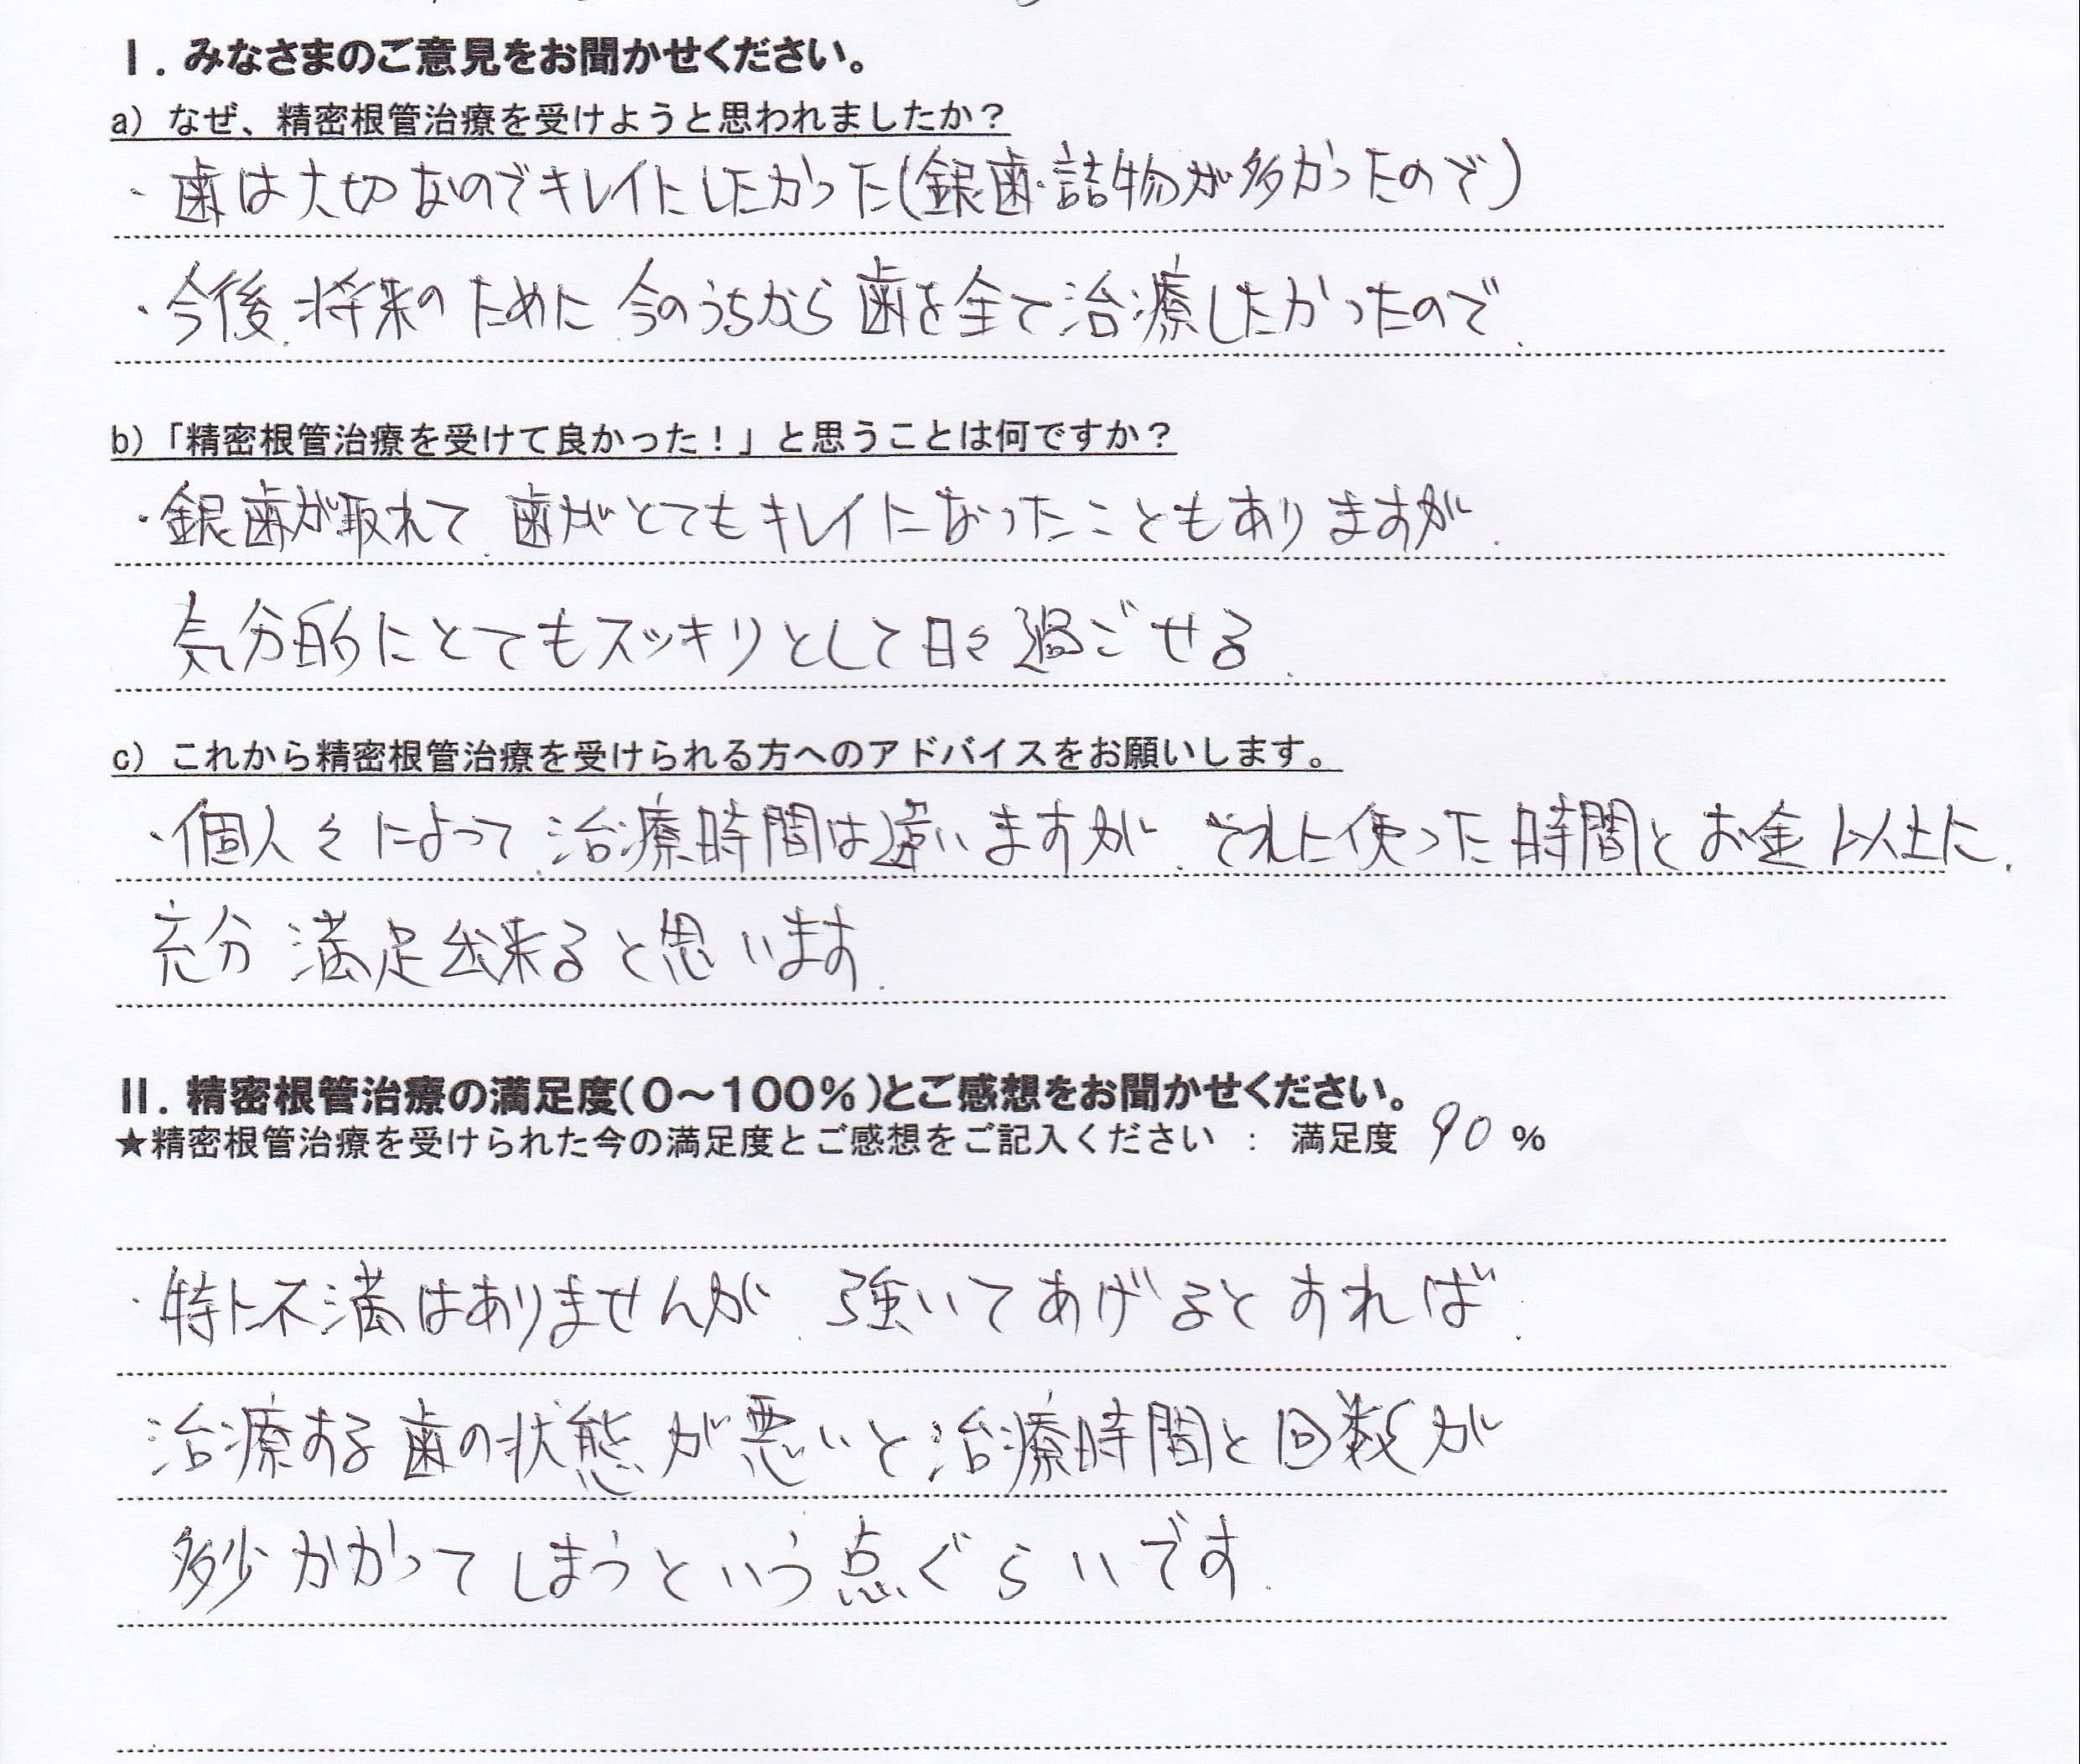 I. みなさまのご意見をお聞かせください。
a) なぜ、精密根管治療を受けようと思われましたか?
・歯は大切なのでキレイにしたかった(銀歯・詰物が多かったので)
・今後.将来のために.今のうちから歯を全て治療したかったので.
b)「精密根管治療を受けて良かった!」と思うことは何ですか?
・銀歯が取れて.歯がとてもキレイになったこともありますが.
気分的にとてもスッキリとして日々過ごせる.
c) これから精密根管治療を受けられる方へのアドバイスをお願いします。
・個人々によって.治療時間は違いますが.それに使った時間とお金以上に.
充分満足出来ると思います.
II. 精密根管治療の満足度(0~100%)とご感想をお聞かせください。
★精密根管治療を受けられた今の満足度とご感想をご記入ください : 満足度 90 %
・特に不満はありませんが.強いてあげるとすれば.
治療する歯の状態が悪いと治療時間と回数が
多少かかってしまうという点ぐらいです.